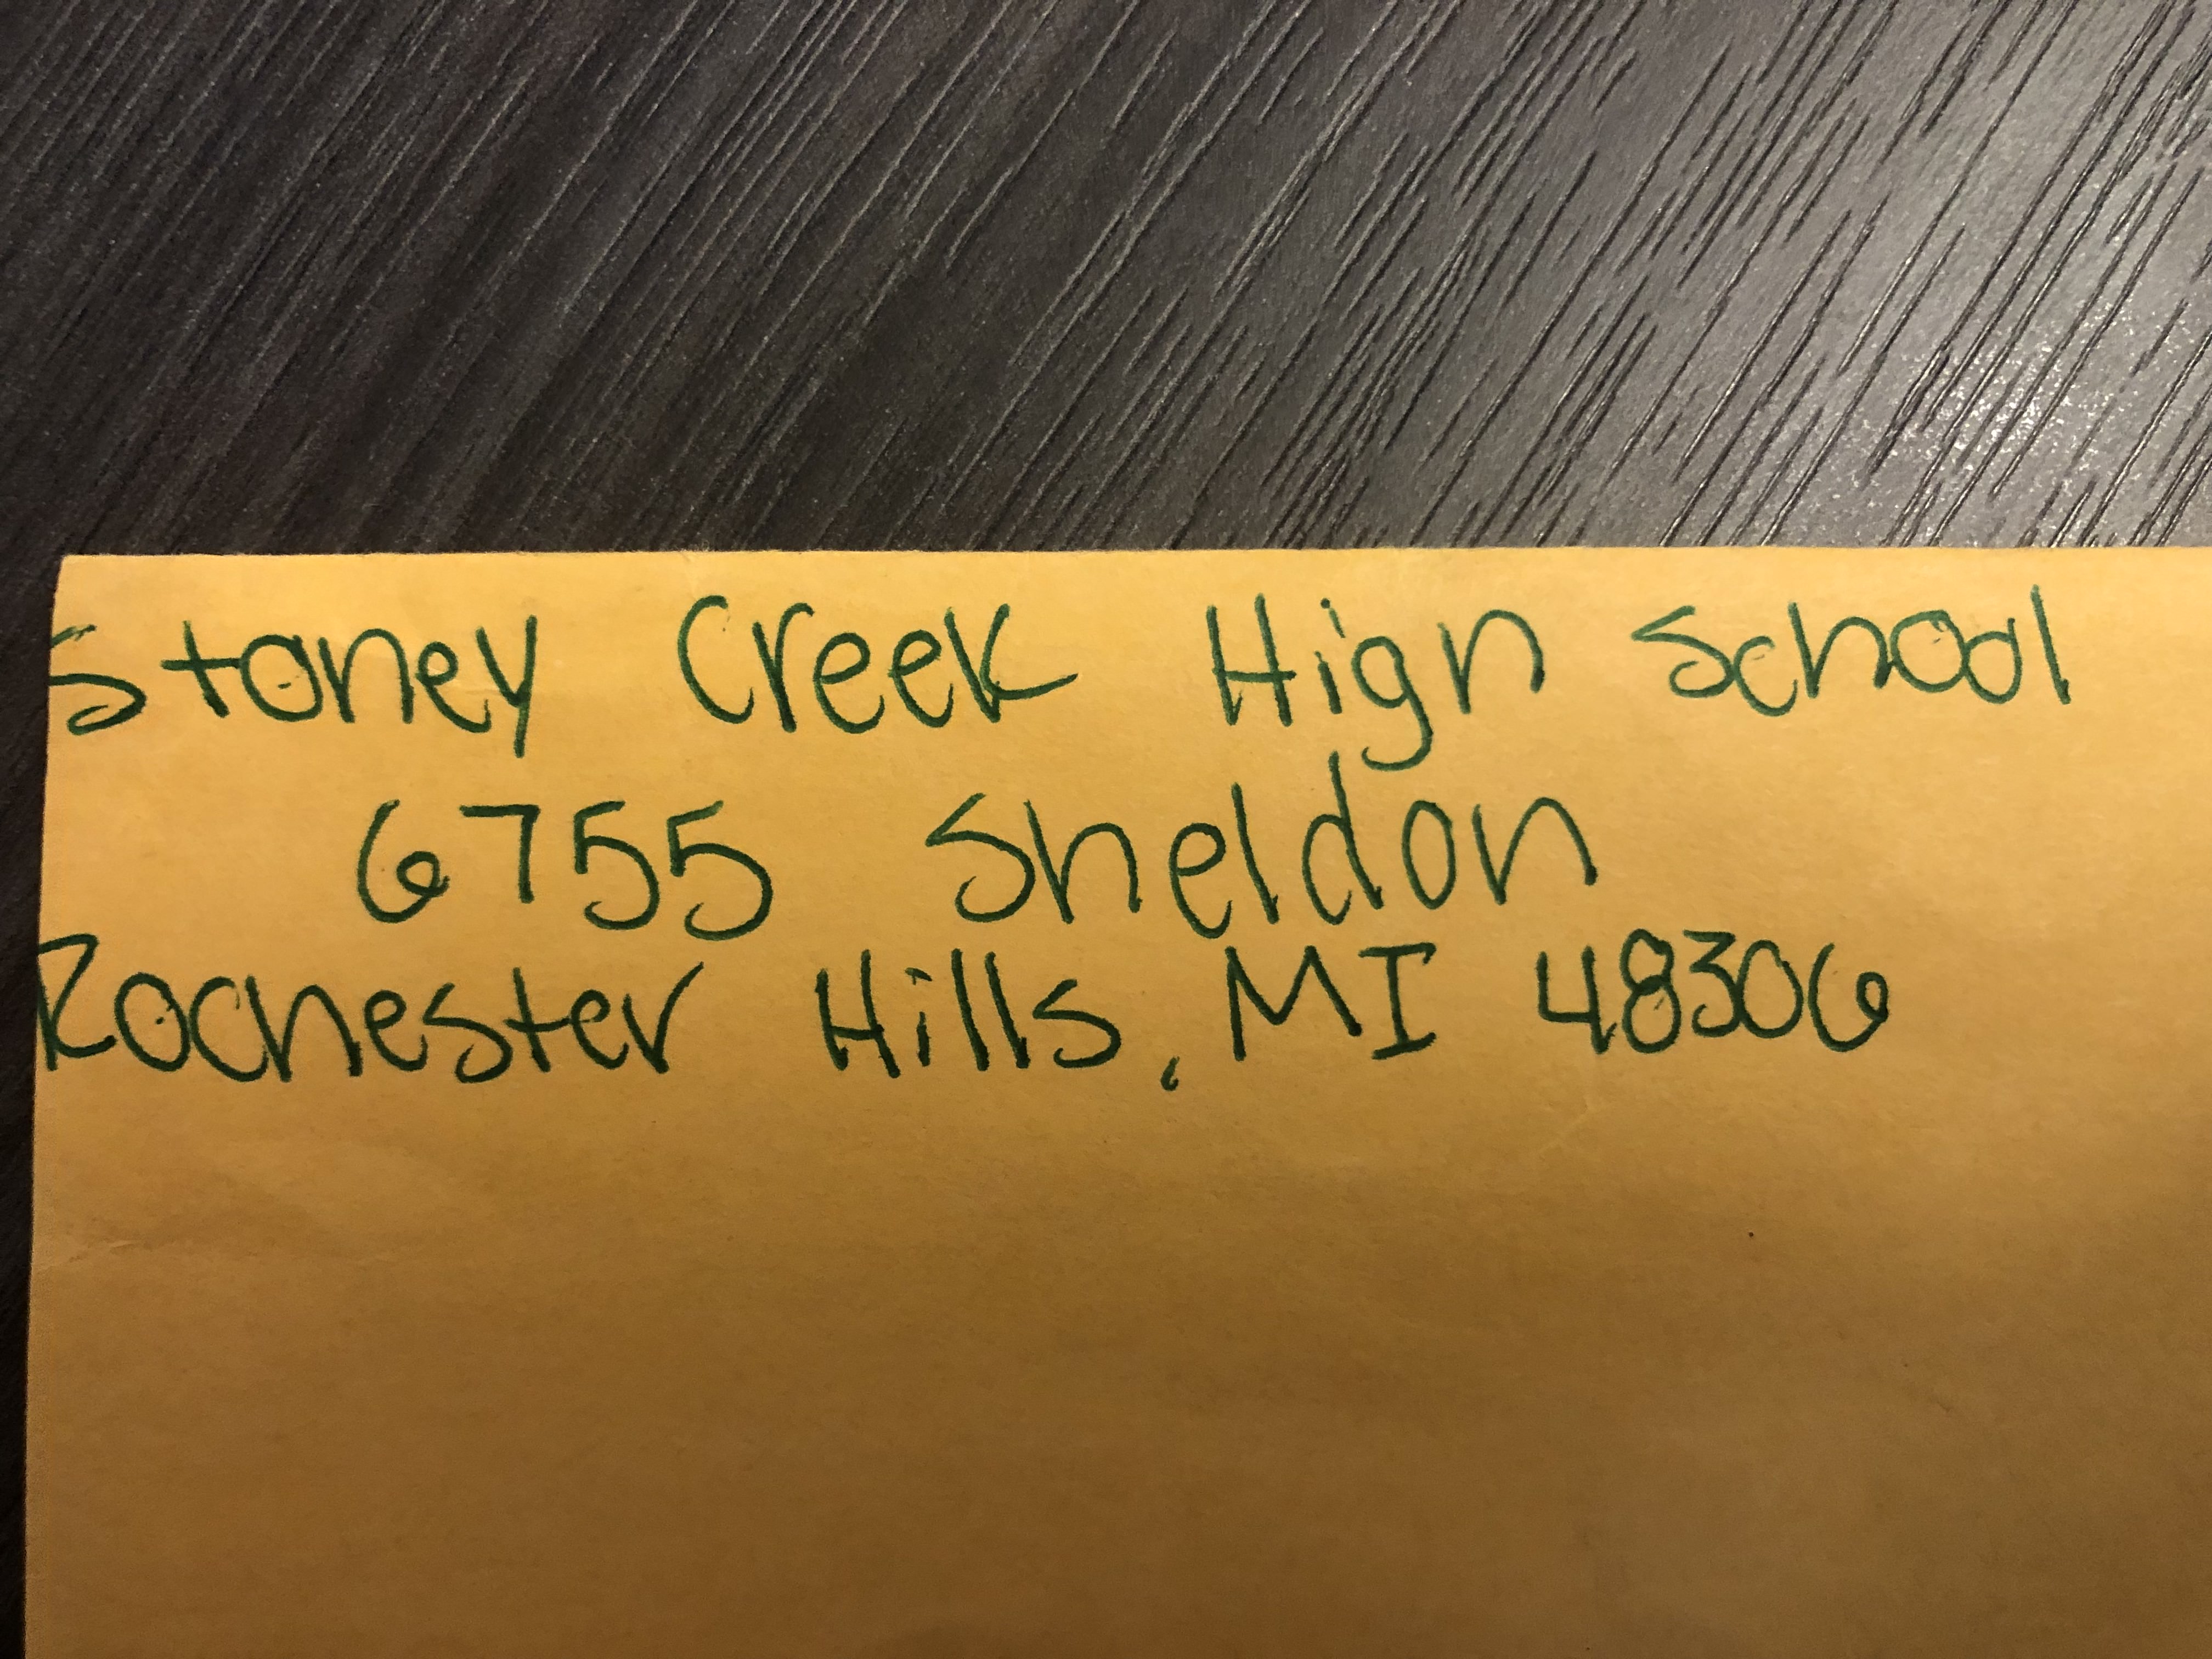 Stoney Creek High School
6755 Sheldon
Rochester Hills, MI 48306